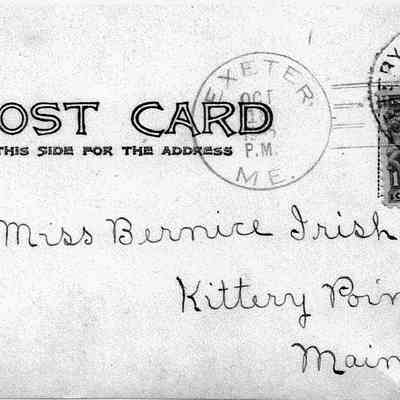 OST CARD
THIS SIDE FOR THE ADDRESS
EXETER
OCT
P.M.
ME.
Miss Bernice Irish
Kittery Poin
Main